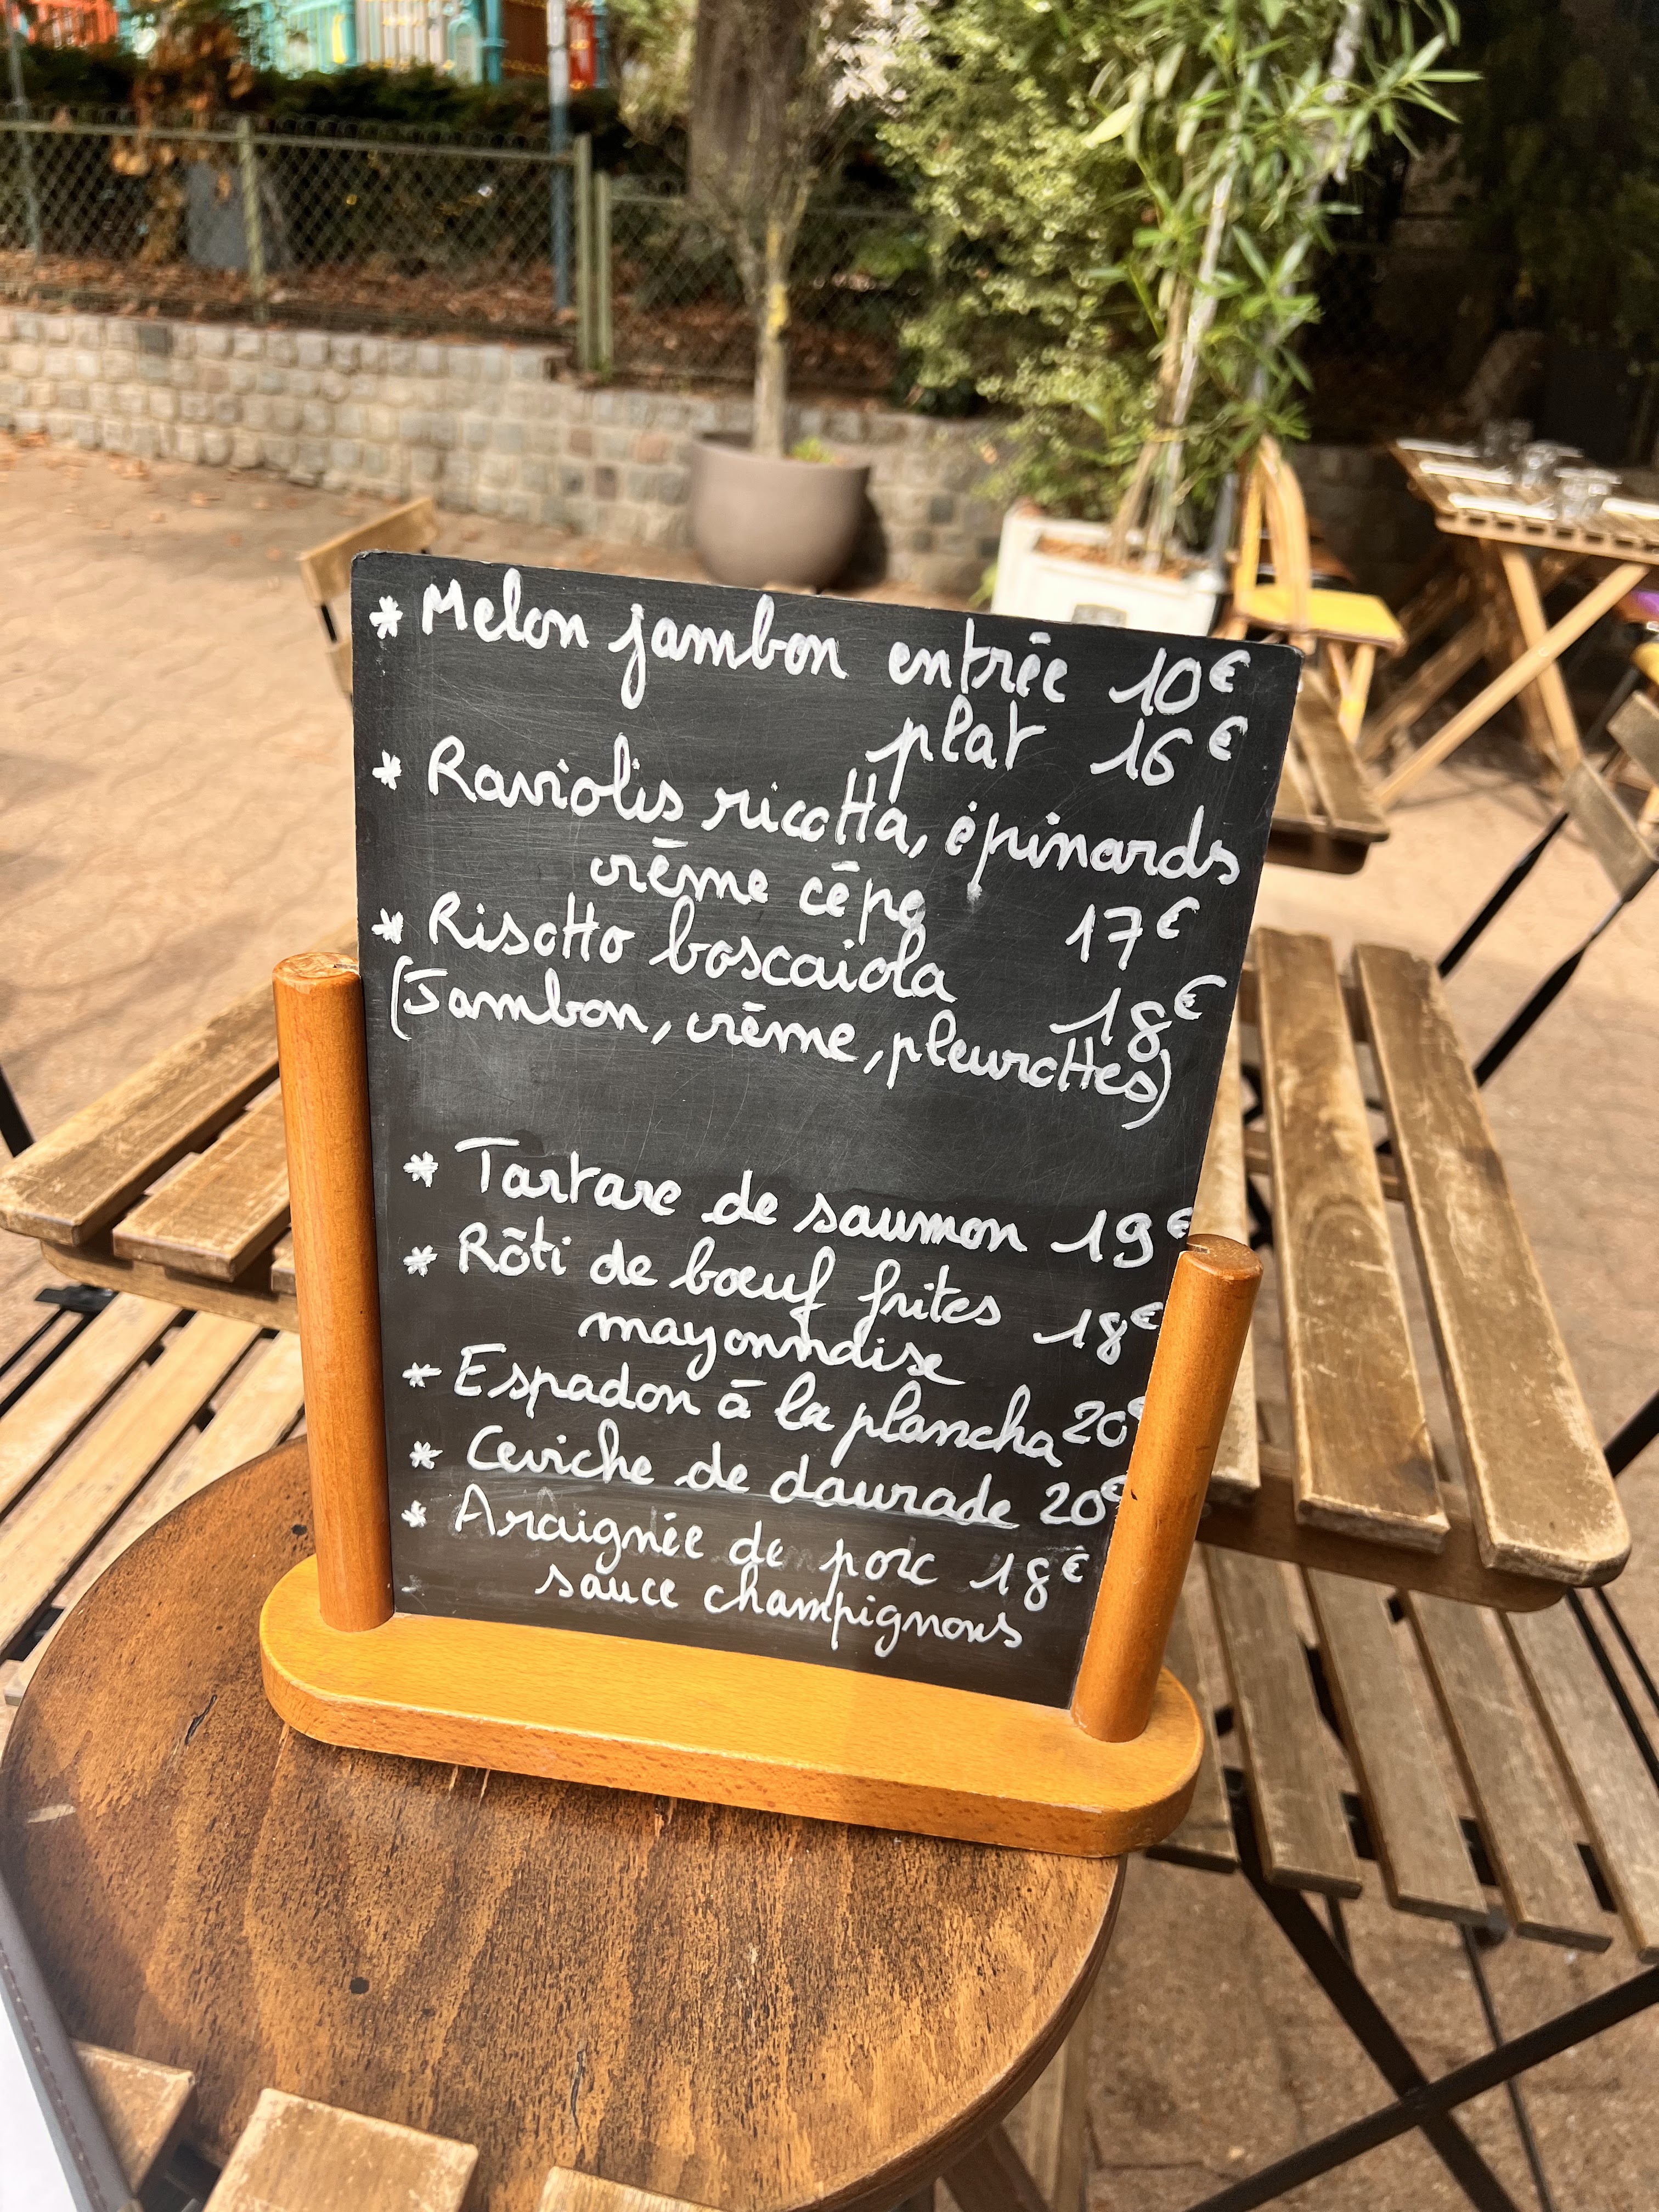 * Melon jambon entrée 10€
plat 16€
* Raviolis ricotta, épinards
crème cêpe 17€
* Risotto boscaiola 18€
(Jambon, crème, pleurottes)
* Tartare de saumon 19€
* Rôti de bœuf frites 18€
mayonnaise
* Espadon à la plancha 20€
* Ceviche de daurade 20€
* Araignée de porc 18€
sauce champignons